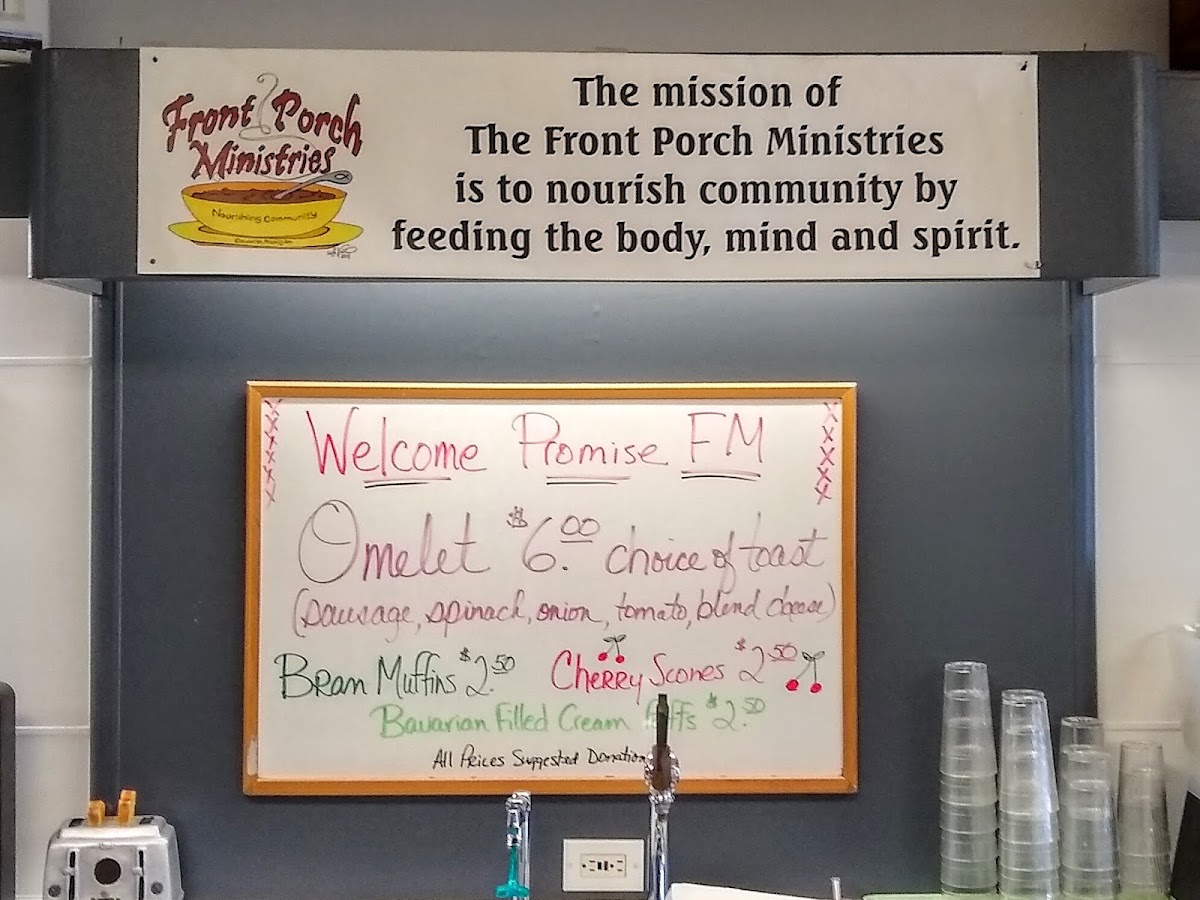 Front Porch
Ministries
Nourishing Community
The mission of
The Front Porch Ministries
is to nourish community by
feeding the body, mind and spirit.
Welcome Promise FM
Omelet $6.00 choice of toast
(sausage, spinach, onion, tomato, blend cheese)
Bran Muffins $2.50 Cherry Scones $2.50
Bavarian Filled Cream $2.50
All Prices Suggested Donation